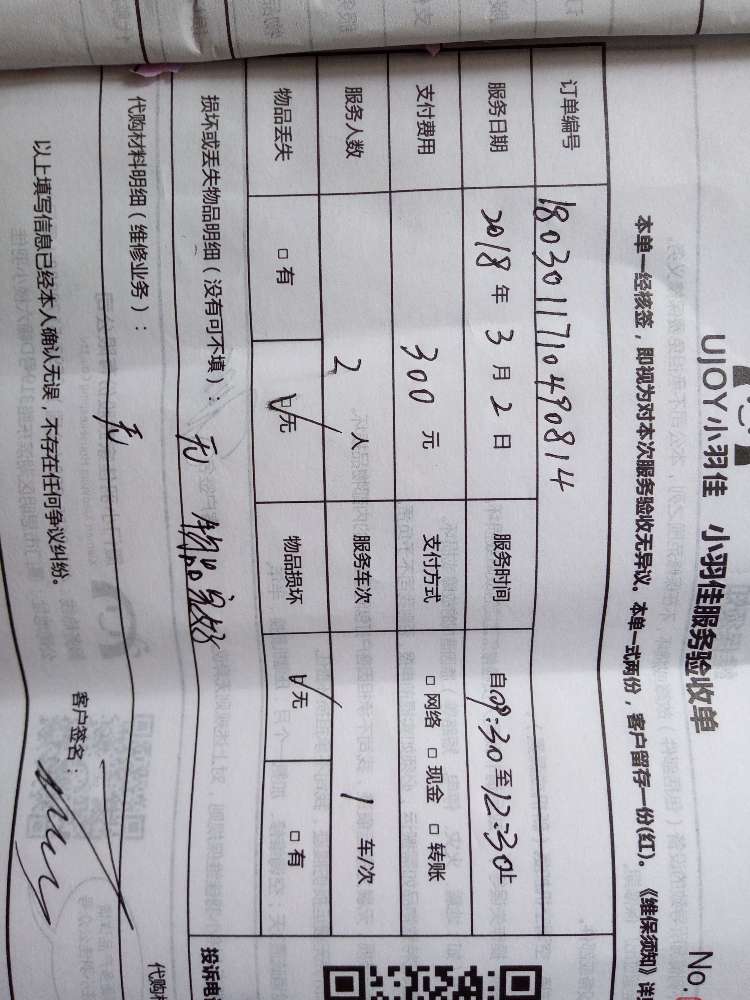 UJOY小羽佳 小羽佳服务验收单 No.
本单一经核签，即视为对本次服务验收无异议。本单一式两份，客户留存一份(红)。《维保须知》详
订单编号 1803011710490814
服务日期 2018 年 3 月 2 日 服务时间 自09:30至12:30止
支付费用 300 元 支付方式 □ 网络 □ 现金 □ 转账
服务人数 2 人 服务车次 1 车/次
物品丢失 □ 有 ☑ 无 物品损坏 ☑ 无 □ 有
损坏或丢失物品明细（没有可不填）： 无 物品完好 投诉电
代购材料明细（维修业务）： 无 代购材
以上填写信息已经本人确认无误，不存在任何争议纠纷。 客户签名：